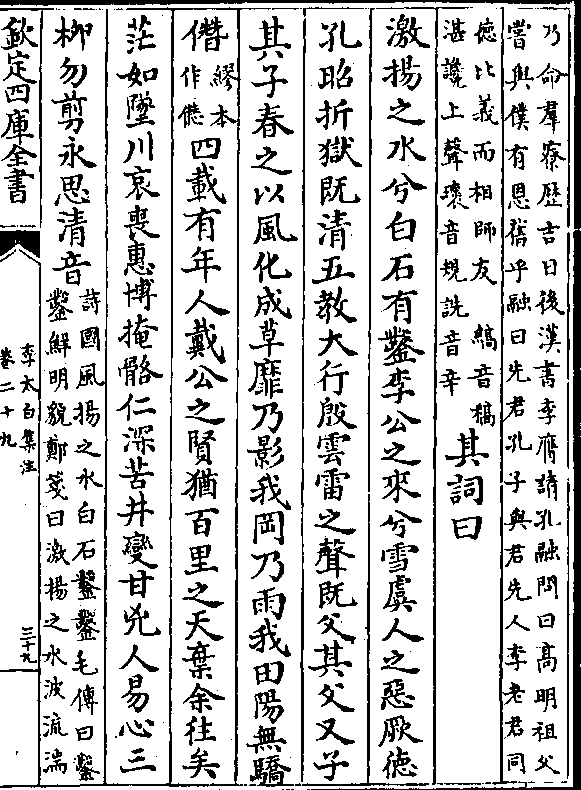 乃命羣寮歴吉日後漢書李膺請孔融問曰髙明祖父
嘗與僕有恩舊乎融曰先君孔子與君先人李老君同
徳比義而相師友 縞音稿
湛讒上聲瓌音規詵音辛
其詞曰
激揚之水兮白石有鑿李公之來兮雪虞人之惡厥徳
孔昭折獄既清五教大行殷雲雷之聲既父其父又子
其子春之以風化成草靡乃影我岡乃雨我田陽無驕
僭繆本作愆四載有年人戴公之賢猶百里之天棄余往矣
茫如墜川哀喪惠博掩骼仁深苦井變甘兇人易心三
柳勿剪永思清音
詩國風揚之水白石鑿鑿毛傳曰鑿
鑿鮮明貌鄭箋曰激揚之水波流湍
欽定四庫全書
李太白集注
卷二十九
三十九